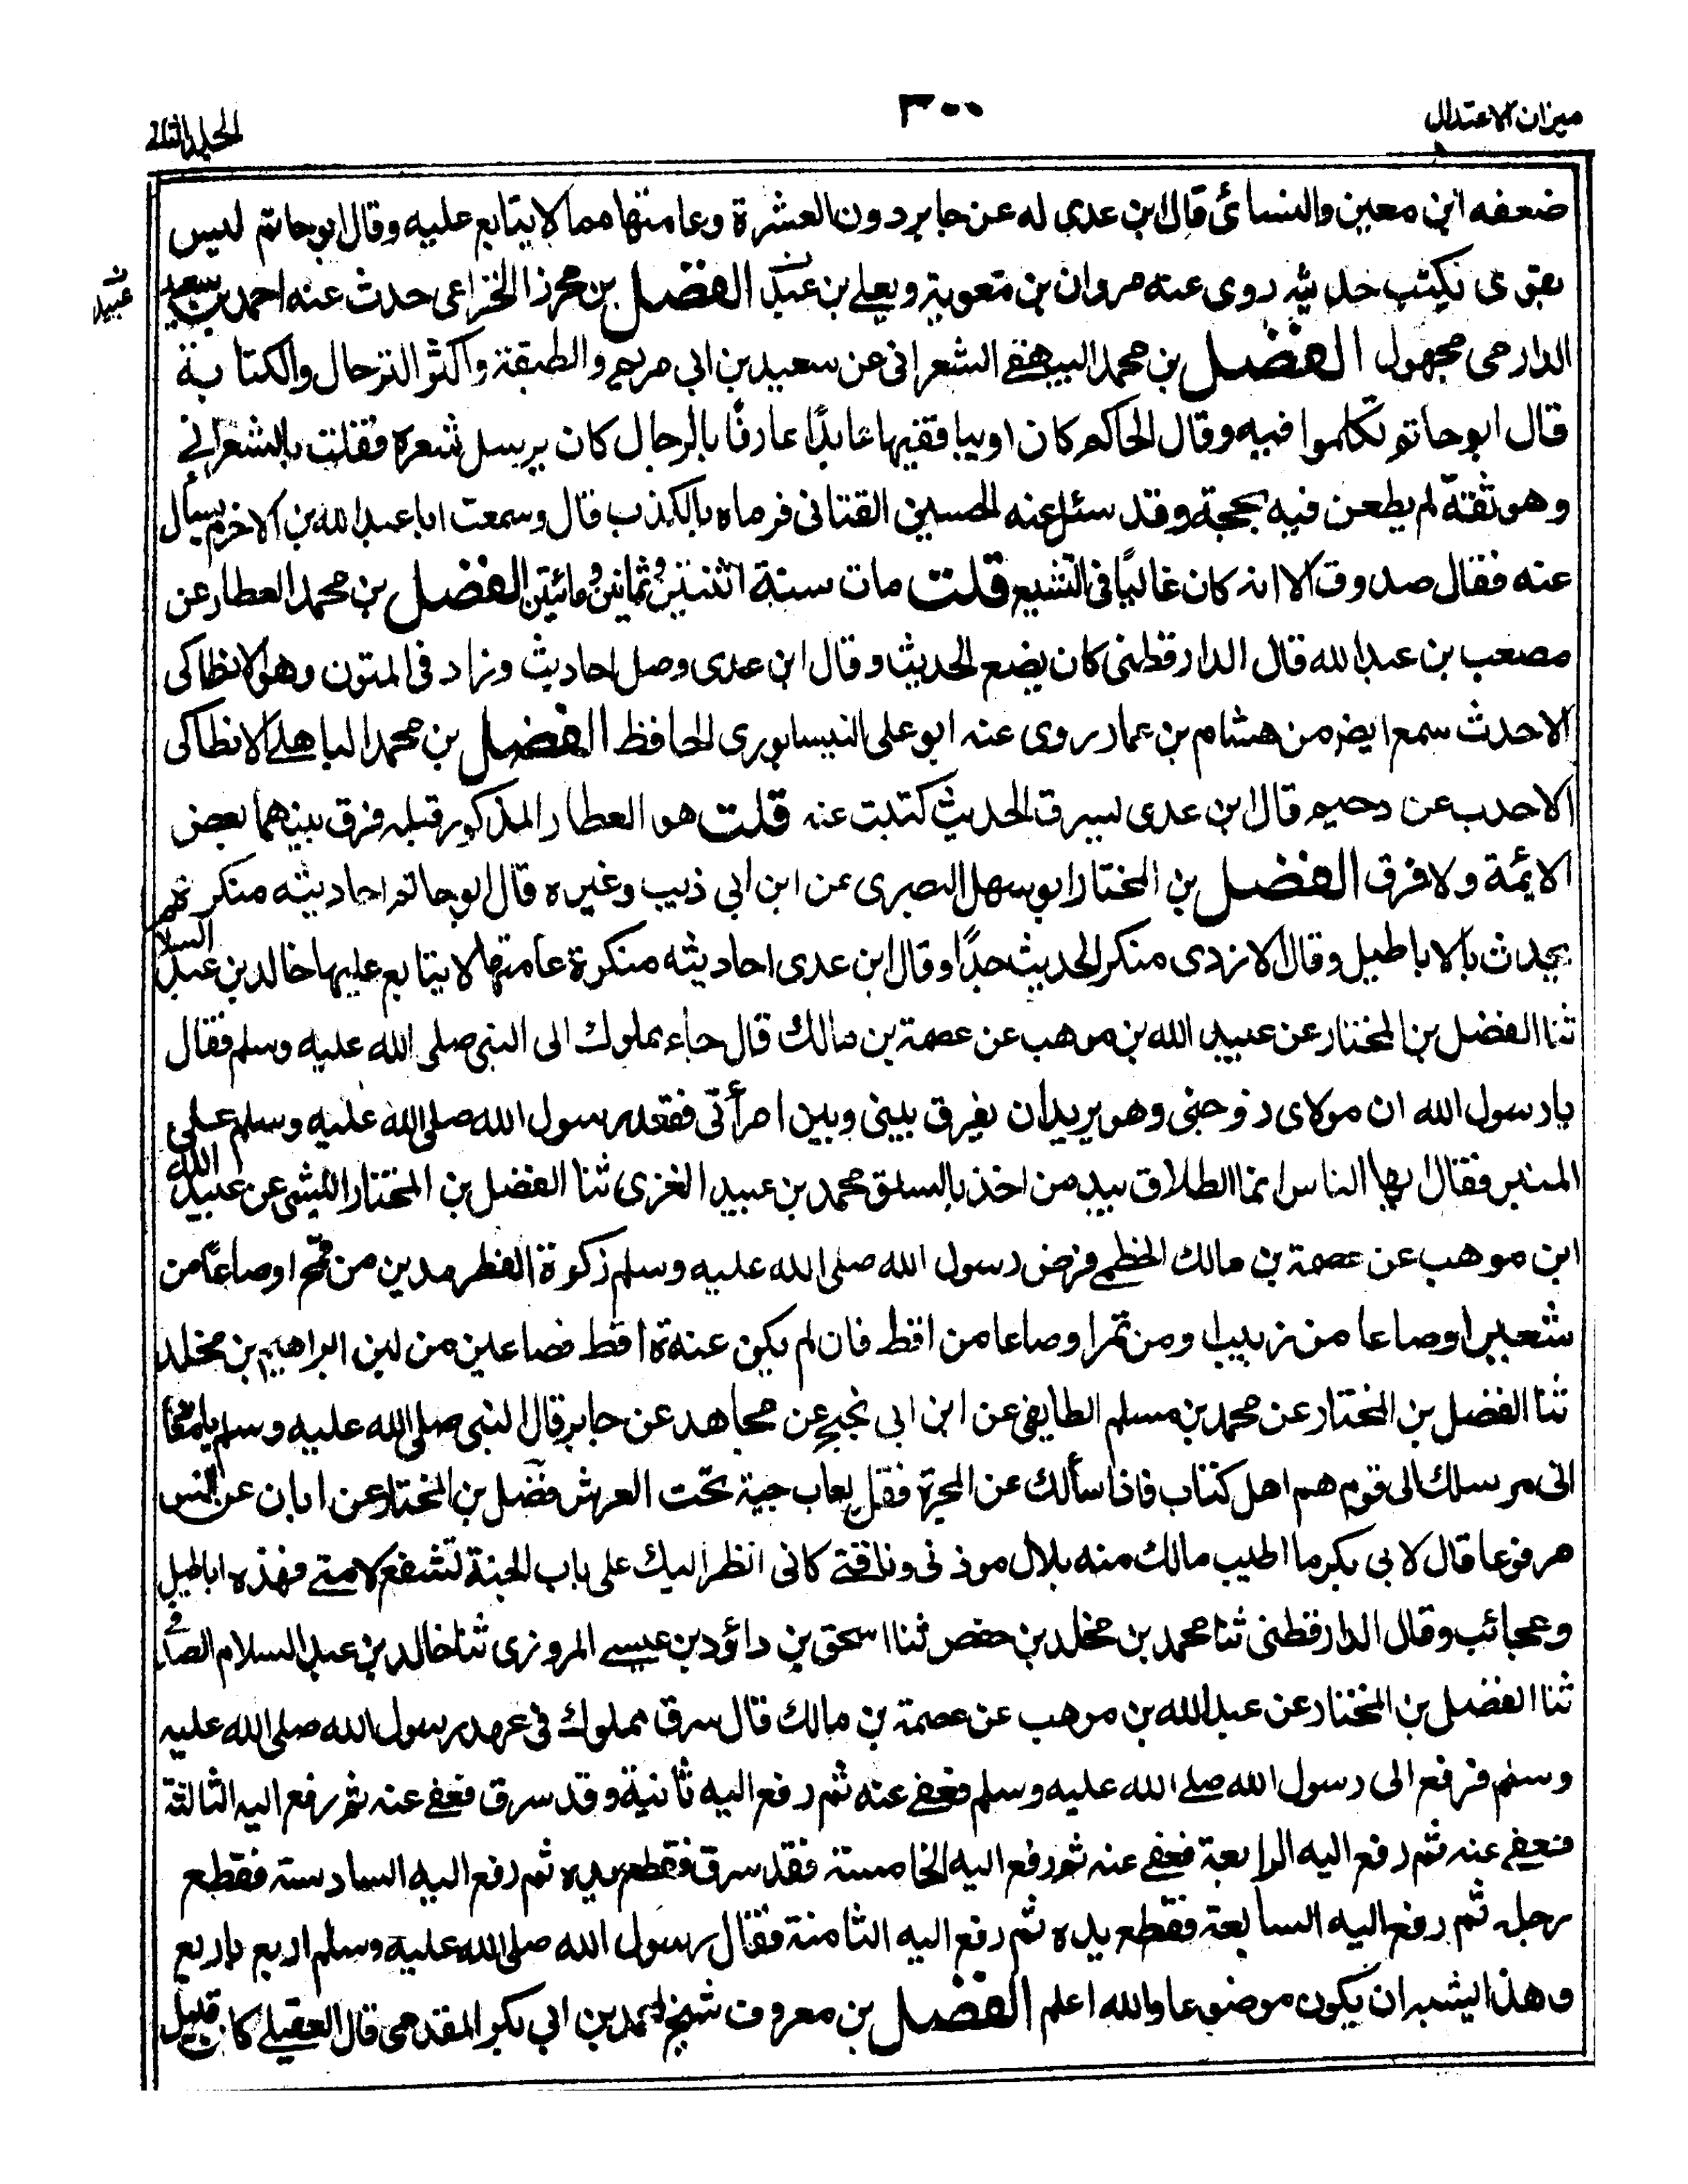 ميزان الاعتدال
٣٠٠
المجلد الثاني
ضعفه ابن معين والنسائ قال ابن عدى له عن جابر دون العشرة وعامتها مما لا يتابع عليه وقال ابو حاتم ليس
بقوى يكتب حديثه روى عنه مروان بن معوية ويعلے بن عبيد الفضل بن محرز الخزاعى حدث عنه احمد بن سعيد
الدارمى مجهول الفضل بن محمد البيهقے الشعرانى عن سعيد بن ابي مريم والطبقة واكثر الترحال والكتابة
قال ابو حاتم تكلموا فيه وقال الحاكم كان اديبا فقيها عابدًا عارفًا بالرجال كان يرسل شعره فقلت بالشعرانے
وهو ثقة لم يطعن فيه بحجة وقد سئل عنه الحسين القتانى فرماه بالكذب قال وسمعت ابا عبد الله بن الاخرم يسأل
عنه فقال صدوق الا انه كان غاليًا فى التشيع قلت مات سنة اثنتين وثمانين ومائتين الفضل بن محمد العطار عن
مصعب بن عبد الله قال الدارقطنى كان يضع الحديث وقال ابن عدى وصل احاديث وزاد فى المتون وهو الانطاكى
الاحدث سمع ايضا من هشام بن عمار روى عنه ابو على النيسابورى الحافظ الفضل بن محمد الباهلے الانطاكى
الاحدب عن دحيم قال ابن عدى يسرق الحديث كتبت عنه قلت هو العطار المذكور قبله فرق بينهما بعض
الائمة ولا فرق الفضل بن المختار ابو سهل البصرى عن ابن ابي ذيب وغيره قال ابو حاتم احاديثه منكرة
يحدث بالاباطيل وقال الازدى منكر الحديث جدًا وقال ابن عدى احاديثه منكرة عامتها لا يتابع عليها خالد بن عبد السلام
ثنا الفضل بن المختار عن عبيد الله بن موهب عن عصمة بن مالك قال جاء مملوك الى النبى صلى الله عليه وسلم فقال
يا رسول الله ان مولاى زوجنى وهو يريد ان يفرق بينى وبين امرأتى فقعد رسول الله صلى الله عليه وسلم على
المنبر فقال ايها الناس انما الطلاق بيد من اخذ بالساق محمد بن عبيد الغزى ثنا الفضل بن المختار الليثى عن عبيد الله
ابن موهب عن عصمة بن مالك الخطمے فرض رسول الله صلى الله عليه وسلم زكوة الفطر مدين من قمح او صاعًا من
شعير او صاعا من زبيب او من تمر او صاعا من اقط فان لم يكن عنده اقط فصاعين من لبن ابراهيم بن مخلد
ثنا الفضل بن المختار عن محمد بن مسلم الطايفى عن ابن ابى نجيح عن مجاهد عن جابر قال النبى صلى الله عليه وسلم يا معاذ
انى مرسلك الى قوم هم اهل كتاب فاذا سألك عن المجرة فقل لعاب حية تحت العرش فضل بن المختار عن ابان عن انس
مرفوعا قال لابى بكر ما اطيب مالك منه بلال موذنى وناقتے كانى انظر اليك على باب الجنة تشفع لامتے فهذه اباطيل
وعجائب وقال الدارقطنى ثنا محمد بن مخلد بن حفص ثنا اسحق بن داؤد بن عيسے المروزى ثنا خالد بن عبد السلام الصدفي
ثنا الفضل بن المختار عن عبد الله بن موهب عن عصمة بن مالك قال سرق مملوك فى عهد رسول الله صلى الله عليه
وسلم فرفع الى رسول الله صلے الله عليه وسلم فعفے عنه ثم رفع اليه ثانية وقد سرق فعفے عنه ثم رفع اليه الثالثة
فعفے عنه ثم رفع اليه الرابعة فعفے عنه ثم رفع اليه الخامسة فقد سرق فقطع يده ثم رفع اليه السادسة فقطع
رجله ثم رفع اليه السابعة فقطع يده ثم رفع اليه الثامنة فقال رسول الله صلى الله عليه وسلم اربع باربع
وهذا يشبه ان يكون موضوعا والله اعلم الفضل بن معروف شيخ لمحمد بن ابي بكر المقدمى قال العقيلے كان